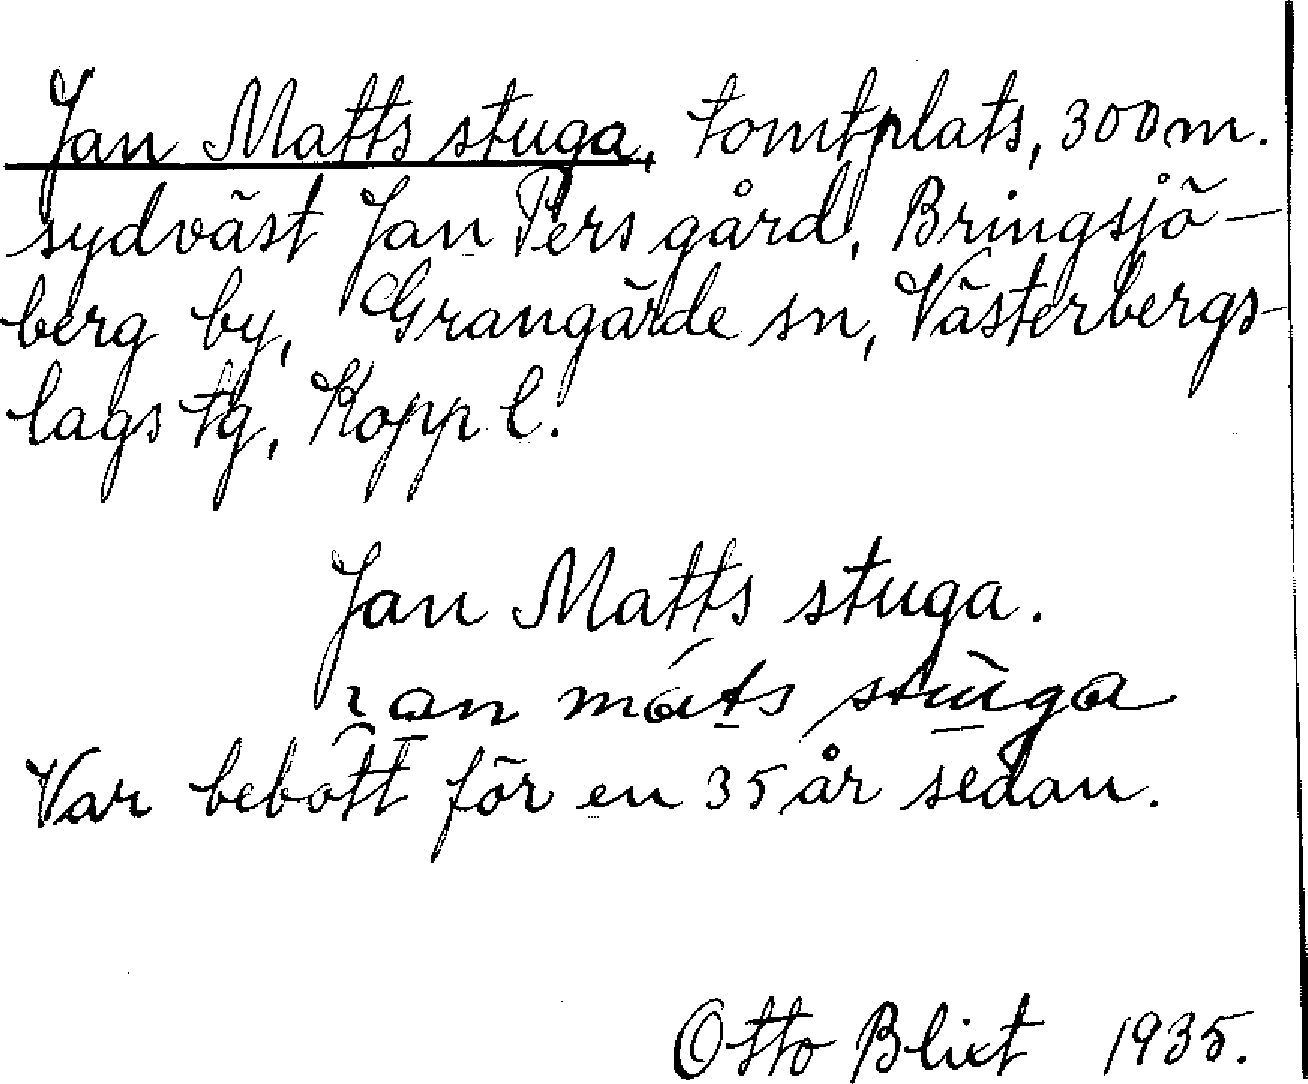 Jan Matts stuga, tomtplats, 300 m.
sydväst Jan Pers gård, Bringsjö-
berg by, Grangärde sn, Västerbergs-
lags tg, Kopp. l.
Jan Matts stuga.
Var bebott för en 35 år sedan.
Otto Blixt 1935.